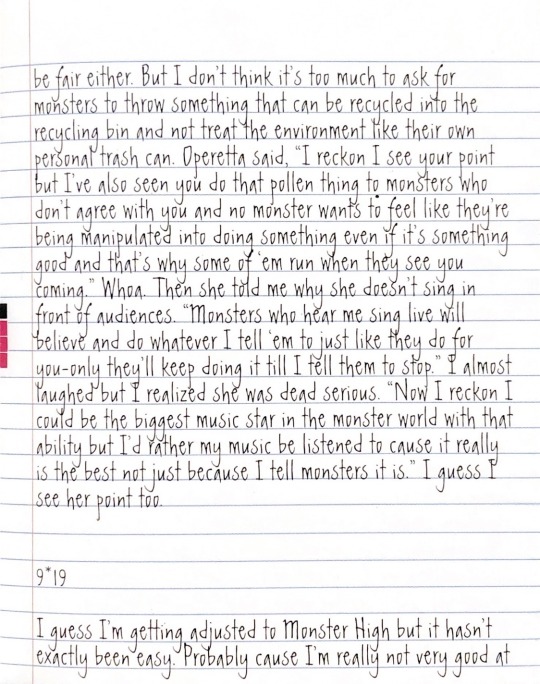 be fair either. But I don't think it's too much to ask for
monsters to throw something that can be recycled into the
recycling bin and not treat the environment like their own
personal trash can. Operetta said, "I reckon I see your point
but I've also seen you do that pollen thing to monsters who
don't agree with you and no monster wants to feel like they're
being manipulated into doing something even if it's something
good and that's why some of 'em run when they see you
coming." Whoa. Then she told me why she doesn't sing in
front of audiences. "Monsters who hear me sing live will
believe and do whatever I tell 'em to just like they do for
you-only they'll keep doing it till I tell them to stop." I almost
laughed but I realized she was dead serious. "Now I reckon I
could be the biggest music star in the monster world with that
ability but I'd rather my music be listened to cause it really
is the best not just because I tell monsters it is." I guess I
see her point too.
9*19
I guess I'm getting adjusted to Monster High but it hasn't
exactly been easy. Probably cause I'm really not very good at